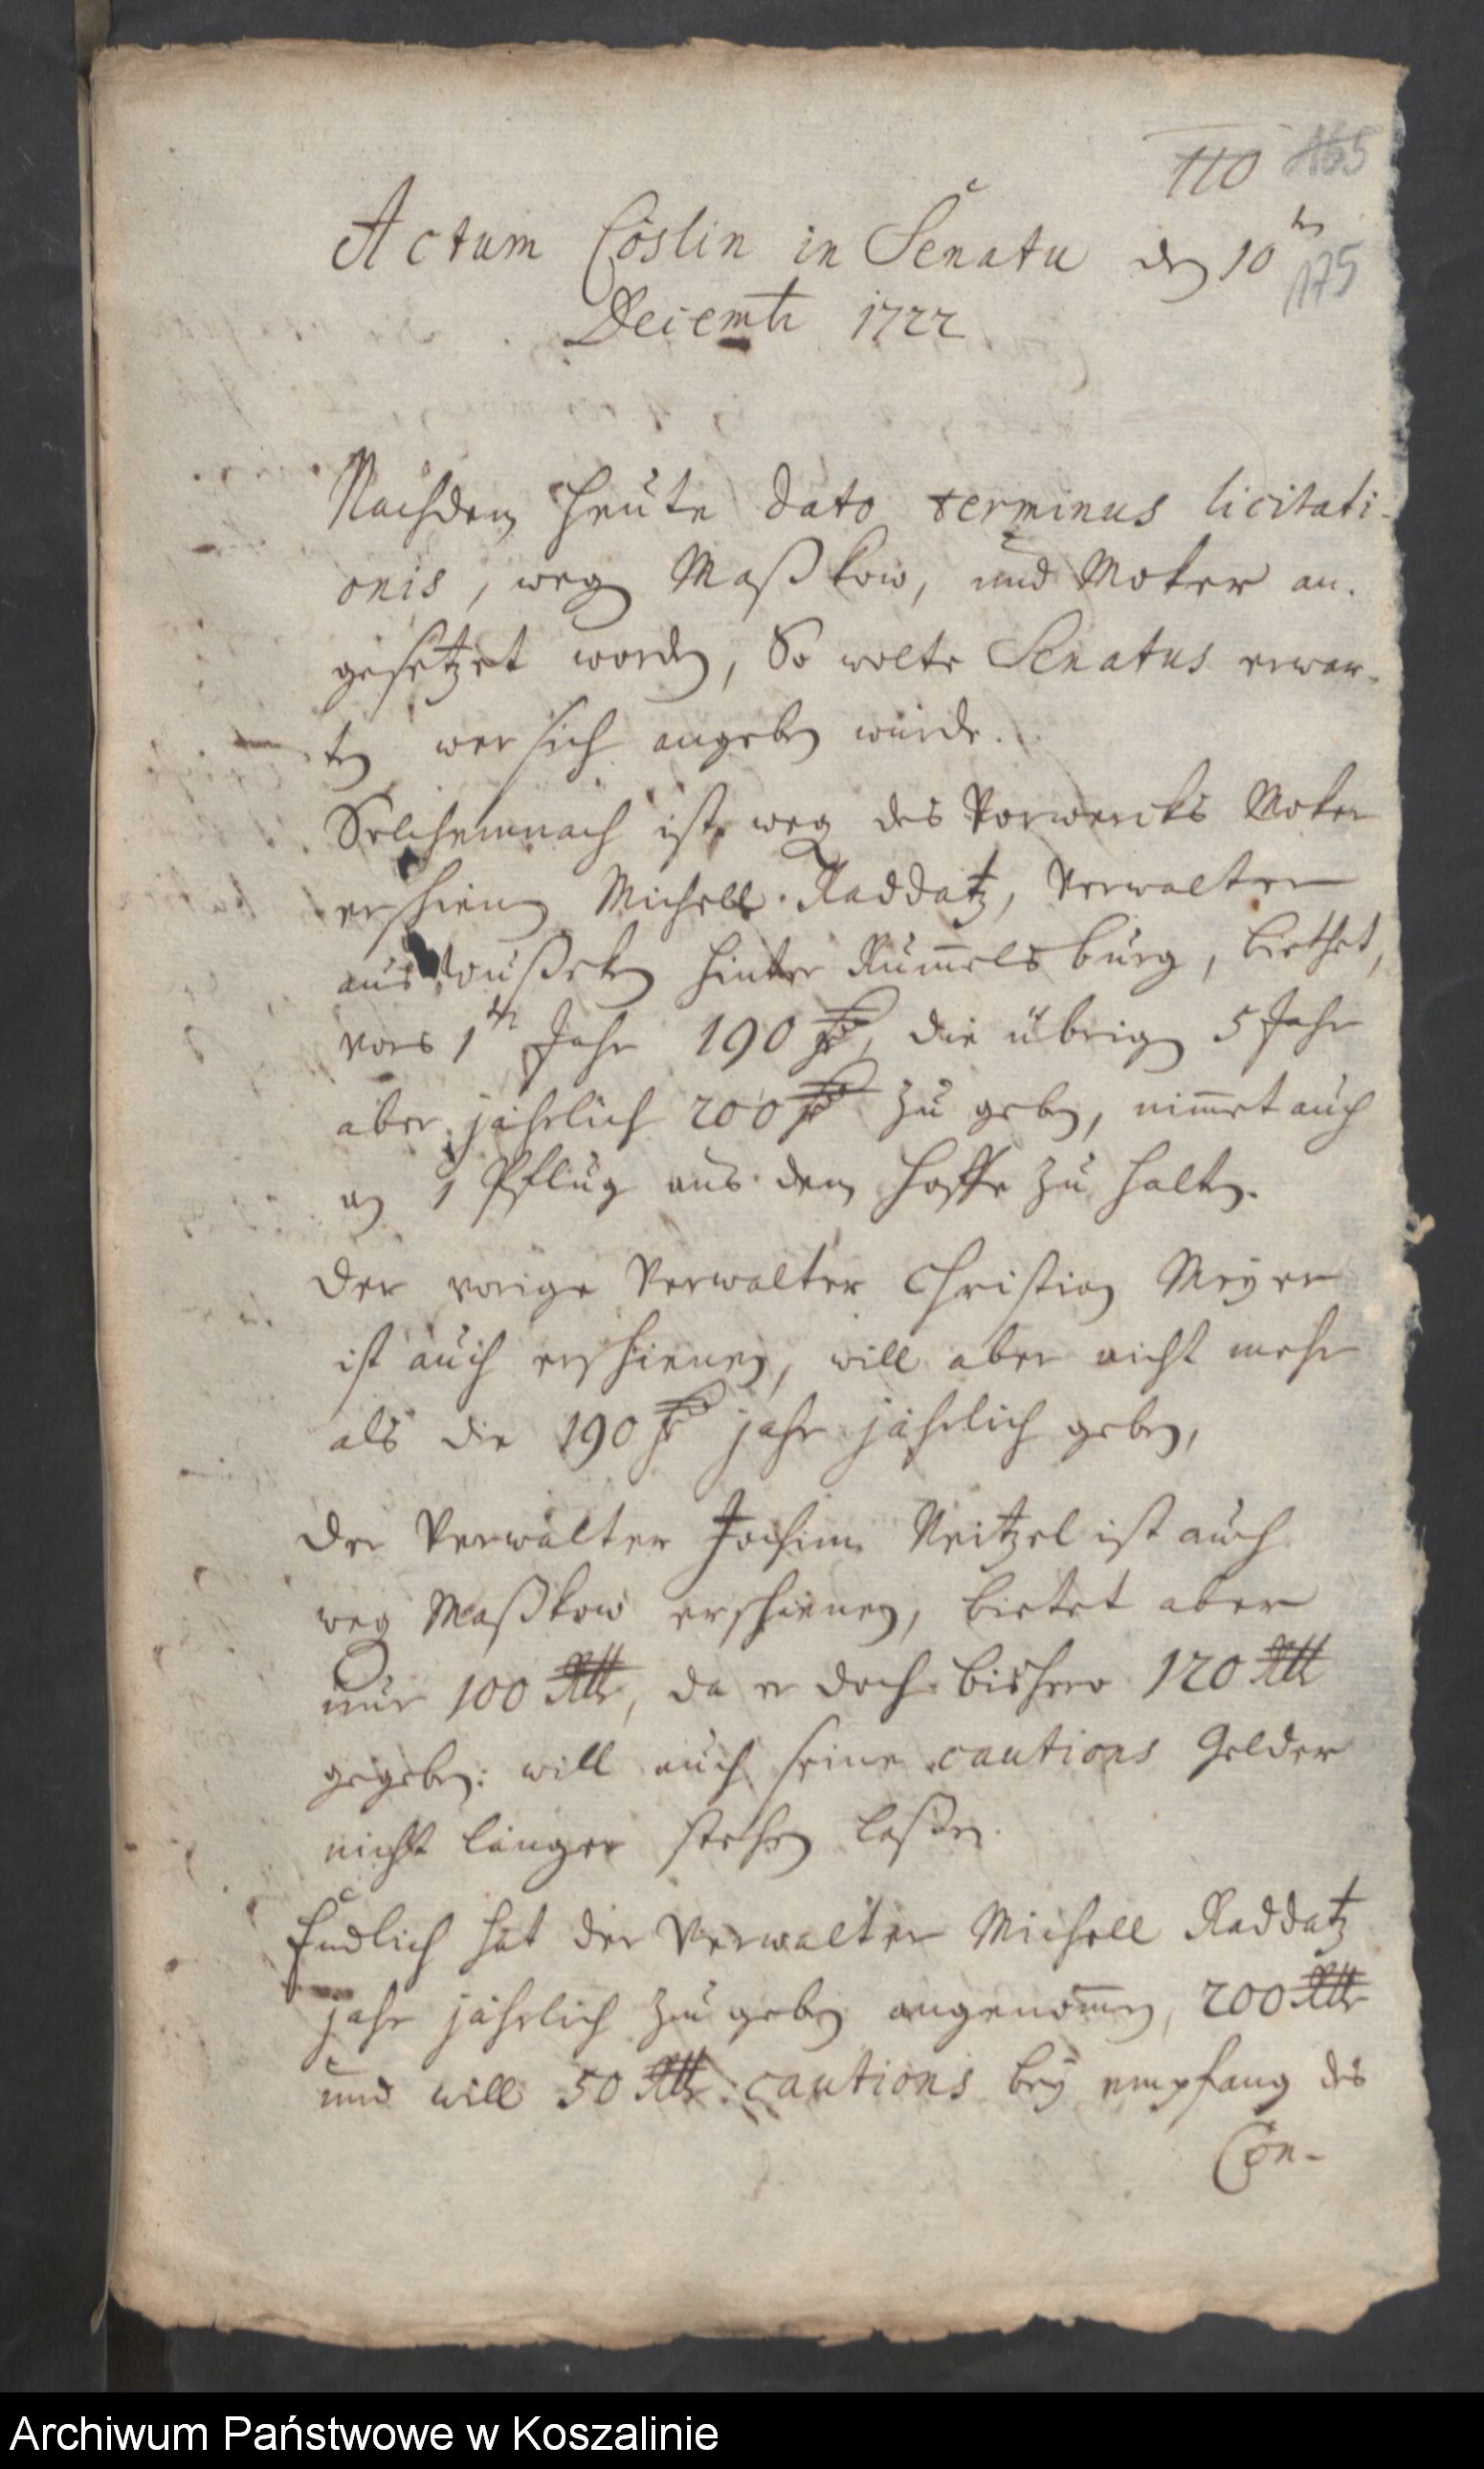 110 165
Actum Cöslin in Senatu den 10ten
175
Decembr 1722
Nachdem heute dato terminus licitati-
onis, wegen Maßkow, und Moker an-
gesetzet worden, So wolte Senatus erwar-
ten wer sich angeben würde.
Solchemnach ist wegen des Vorwercks Moker
erschienen Michell Raddatz, Verwalter
aus hinter Rummelsburg, biethet,
vors 1te Jahr 190 fl, die übrigen 5 Jahr
aber jährlich 200 fl zu geben, nimmet auch
an 1 Pflug aus dem Hoffe zu halten.
Der vorige Verwalter Christian Meyer
ist auch erschienen, will aber nicht mehr
als die 190 fl jahr jährlich geben,
Der Verwalter Jochim Neitzel ist auch
wegen Maßkow erschienen, bietet aber
nur 100 Rtlr, da er doch bishero 120 Rtlr
gegeben: will auch seine cautions Gelder
nicht länger stehen laßen.
Endlich hat der Verwalter Michell Raddatz
jahr jährlich zu geben angenommen, 200 Rtlr
und will 50 Rtlr cautions bey empfang des
Con-
Archiwum Państwowe w Koszalinie